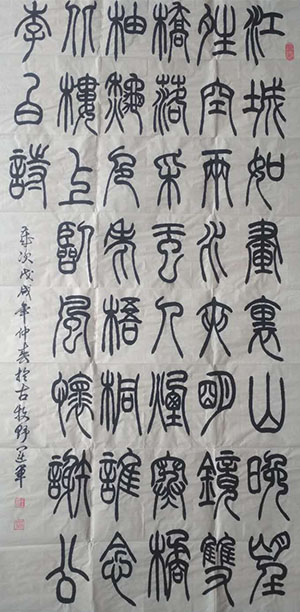 江城如畫裏山晚望
夝空兩水夾明鏡雙
橋落采虹人煙寒橘
柚秋色老梧桐誰念
北樓上臨風懷謝公
李白詩
歲次戊戌年仲春於古牧野